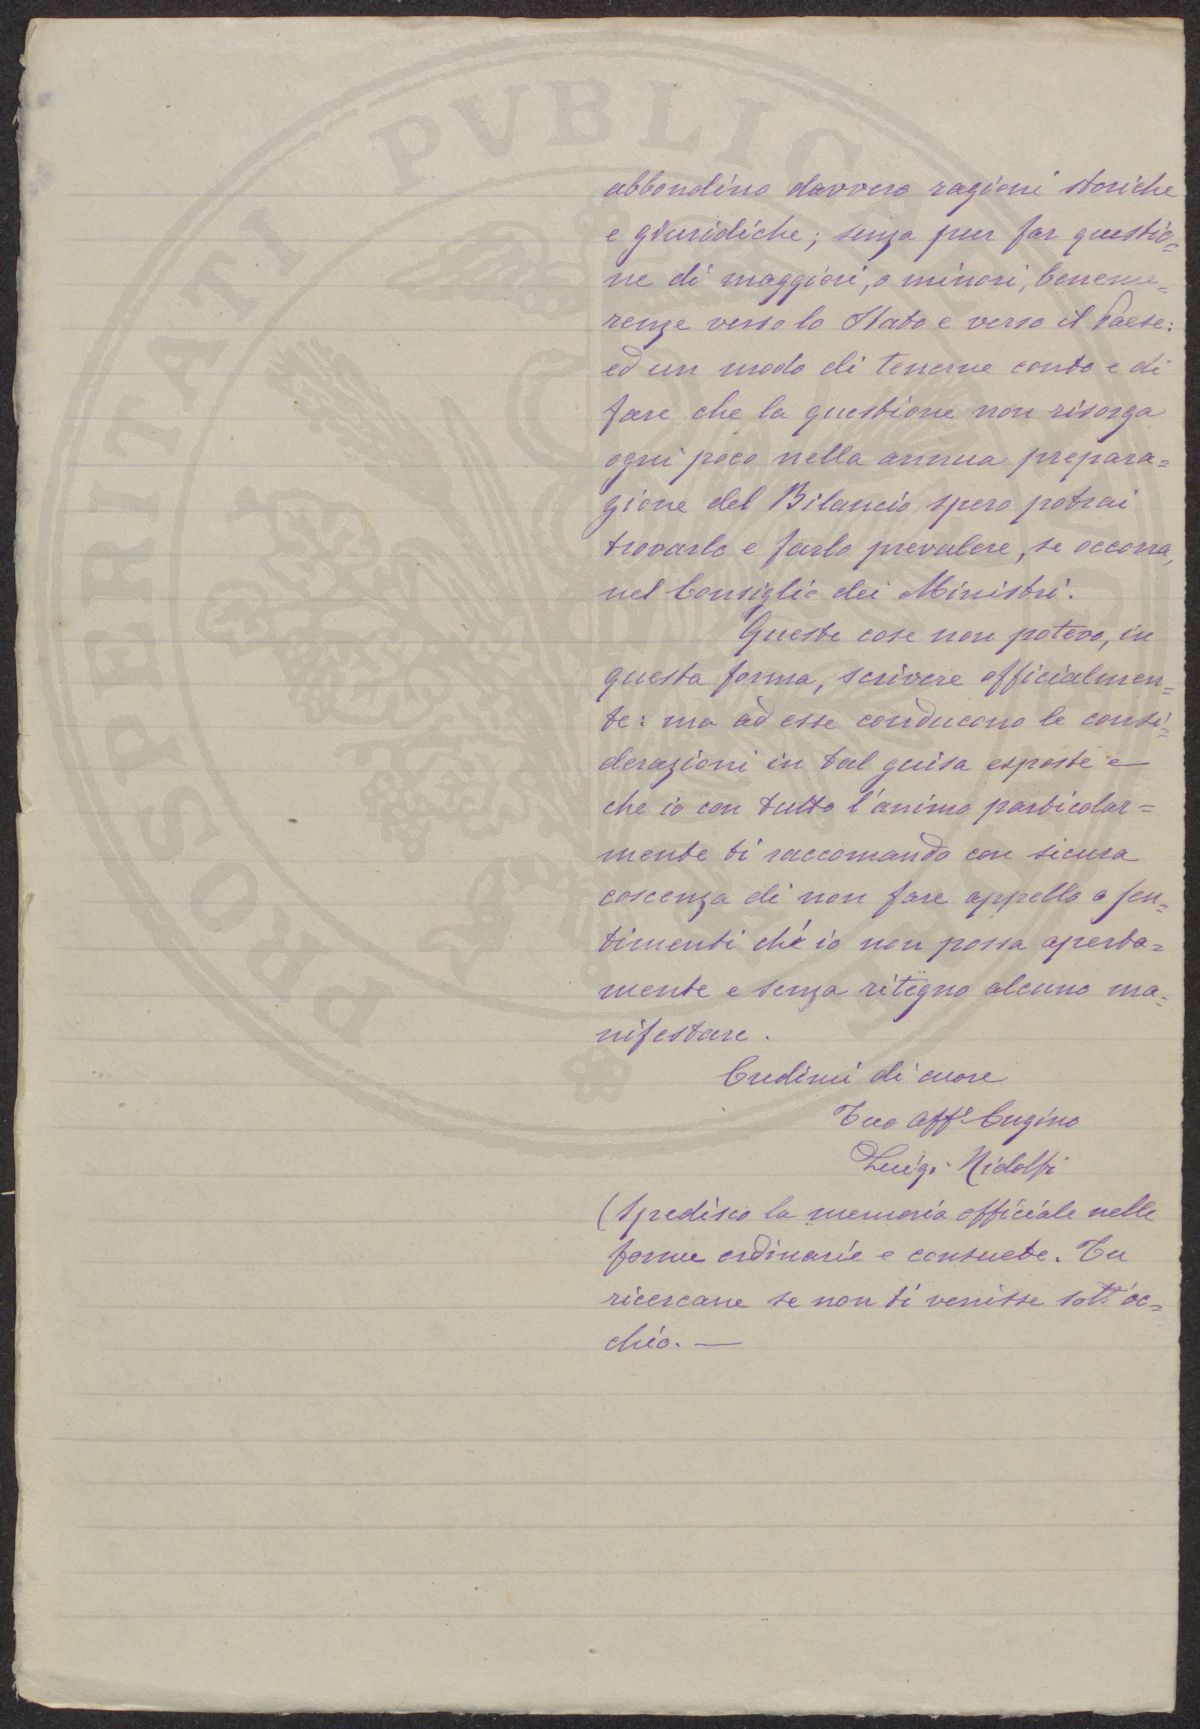 abbondino davvero ragioni storiche
e giuridiche; senza pur far questio=
ne di maggiori, o minori, beneme=
renze verso lo Stato e verso il Paese:
ed un modo di tenerne conto e di
fare che la questione non risorga
ogni poco nella annua prepara=
zione del Bilancio spero potrai
trovarlo e farlo prevalere, se occorra,
nel Consiglio dei Ministri.
Queste cose non potevo, in
questa forma, scrivere officialmen=
te: ma ad esse conducono le consi=
derazioni in tal guisa esposte e
che io con tutto l'animo particolar=
mente ti raccomando con sicura
coscenza di non fare appello a sen=
timenti ch'io non possa aperta=
mente e senza ritegno alcuno ma=
nifestare.
Credimi di cuore
Tuo Aff. Cugino
Luigi Ridolfi
(Spedisco la memoria officiale nelle
forme ordinarie e consuete. Tu
ricercane se non ti venisse sott'oc=
chio. —
PROSPERITATI PVBLICAE